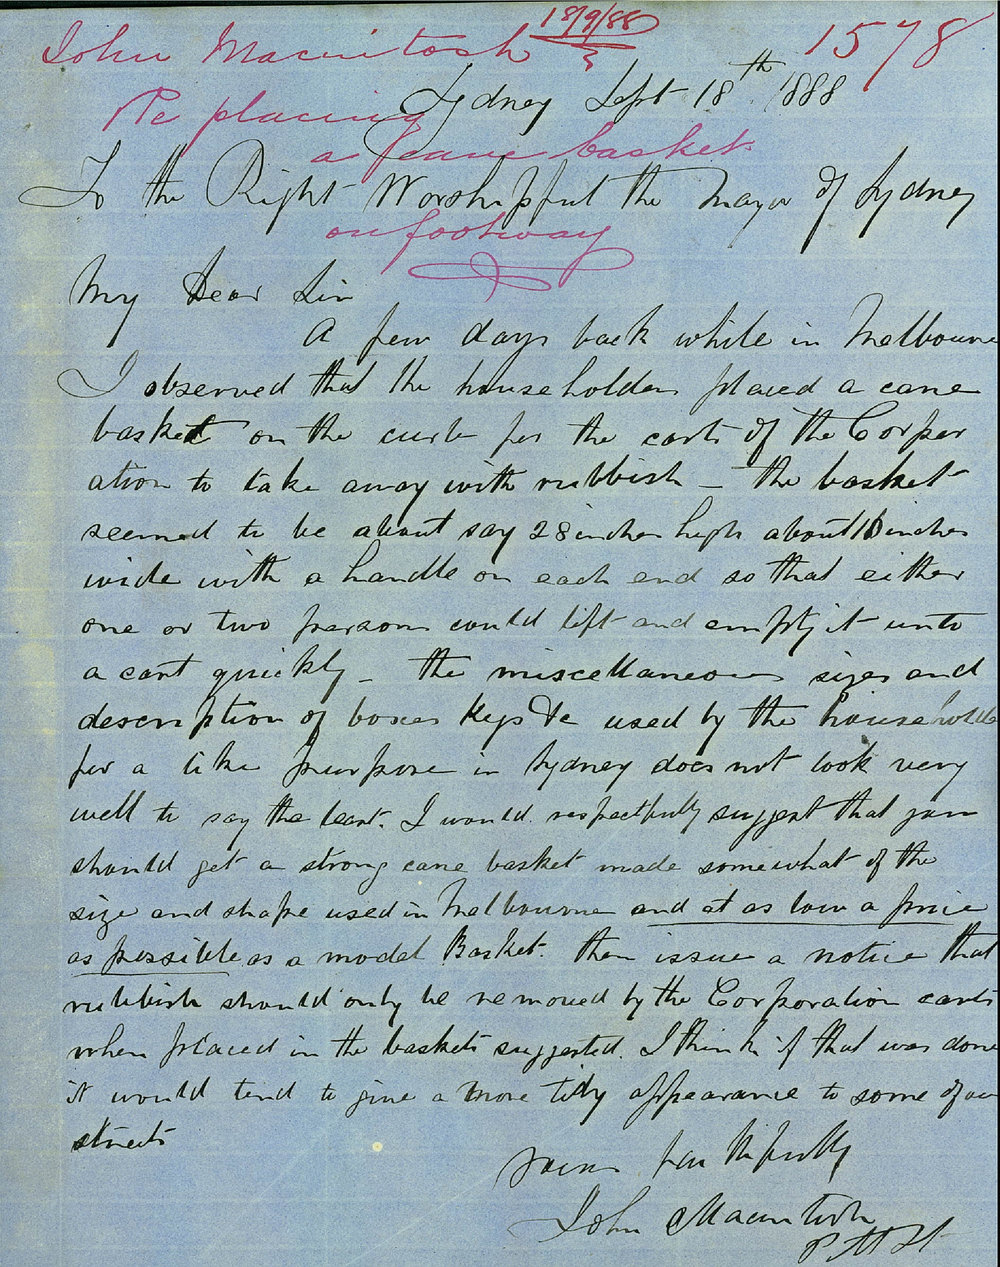 18/9/88
John Macintosh 1578
Sydney Sept 18th 1888
Re placing
a cane basket
To the Right Worshipful the Mayor of Sydney
on footway
My Dear Sir
A few days back while in Melbourne
I observed that the householders placed a cane
basket on the curb for the carts of the Corpor
ation to take away with rubbish – the basket
seemed to be about say 28 inches high about 18 inches
wide with a handle on each end so that either
one or two persons could lift and empty it into
a cart quickly – the miscellaneous sizes and
description of boxes kegs &c used by the householders
for a like purpose in Sydney does not look very
well to say the least. I would respectfully suggest that you
should get a strong cane basket made somewhat of the
size and shape used in Melbourne and at as low a price
as possible as a model Basket. then issue a notice that
rubbish should only be removed by the Corporation carts
when placed in the baskets suggested. I think if that was done
it would tend to give a more tidy appearance to some of our
streets
Yours faithfully
John Macintosh
Pitt St